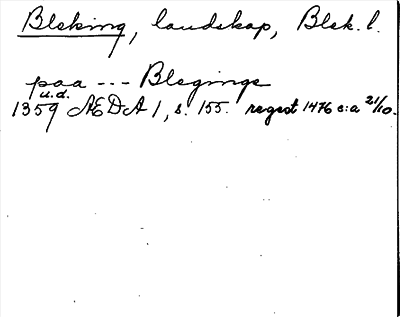 Bleking, landskap, Blek. l.
paa --- Bleginge
u.d.
1359 ÆDA 1, s. 155. regest 1476 c:a 21/10.